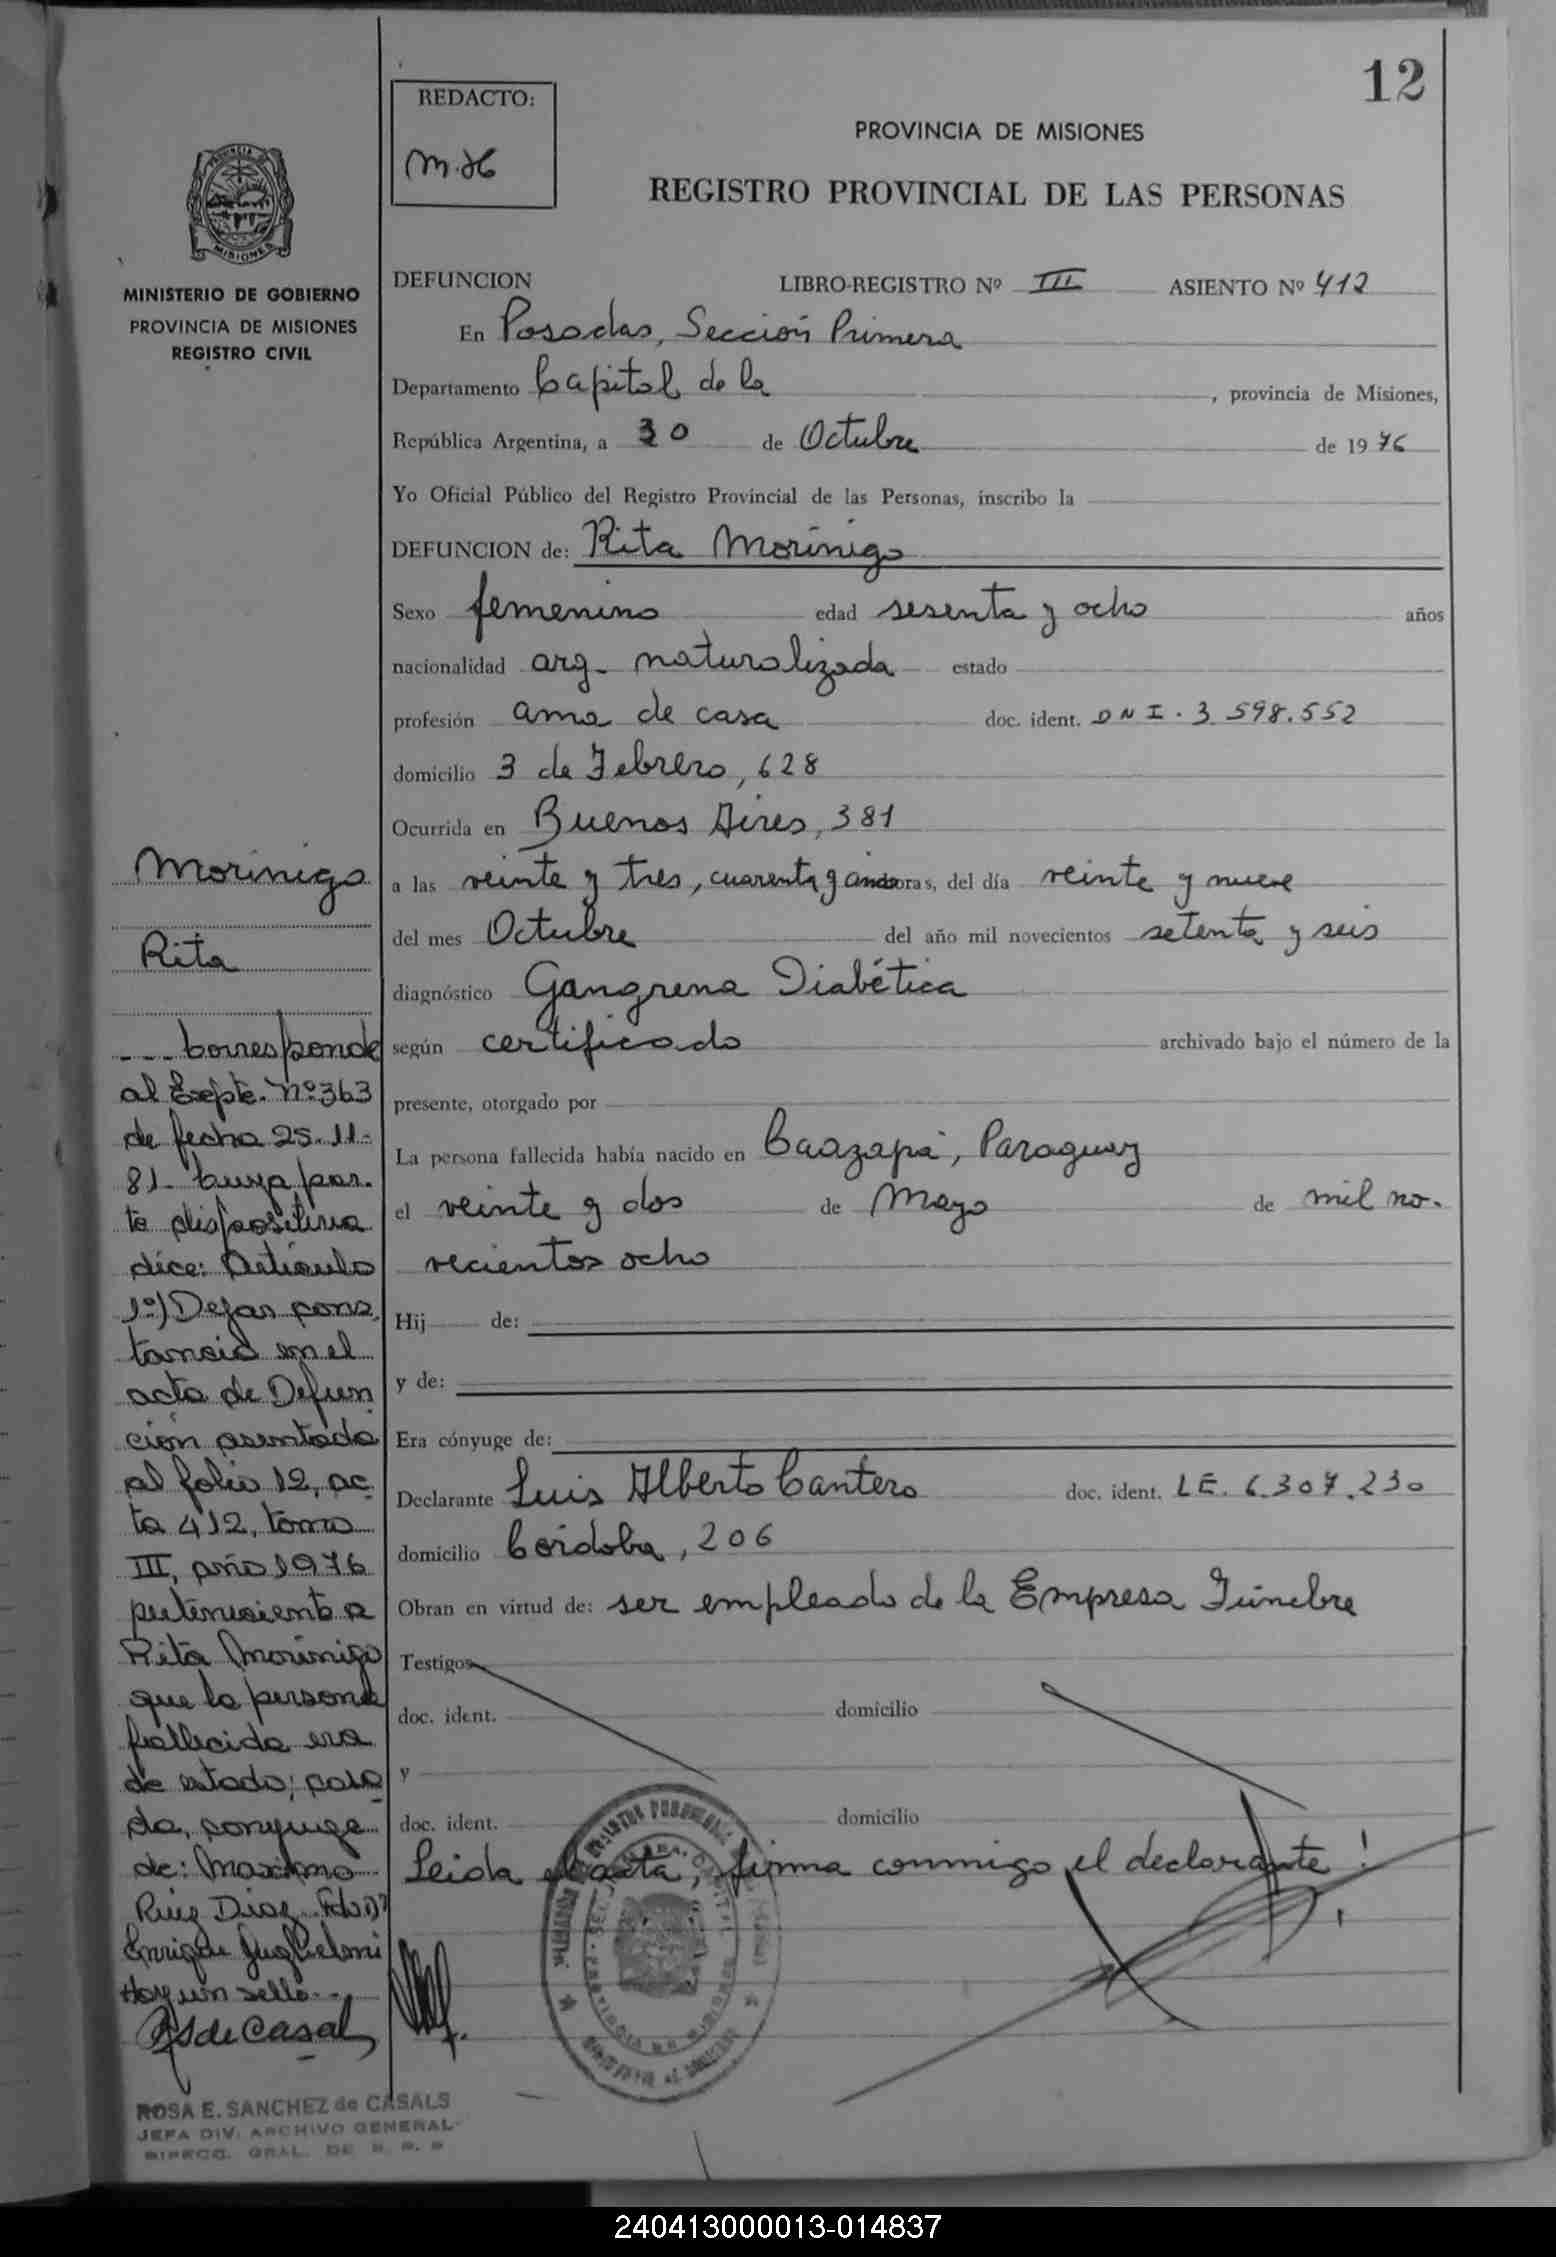 12
REDACTO:
PROVINCIA DE MISIONES
REGISTRO PROVINCIAL DE LAS PERSONAS
MINISTERIO DE GOBIERNO
PROVINCIA DE MISIONES
REGISTRO CIVIL
DEFUNCION LIBRO-REGISTRO Nº III ASIENTO Nº 412
En Posadas, Sección Primera
Departamento Capital de la , provincia de Misiones,
República Argentina, a 30 de Octubre de 1976
Yo Oficial Público del Registro Provincial de las Personas, inscribo la
DEFUNCION de: Rita Morinigo
Sexo femenino edad sesenta y ocho años
nacionalidad arg. naturalizada estado
profesión ama de casa doc. ident. DNI. 3.598.552
domicilio 3 de Febrero, 628
Ocurrida en Buenos Aires, 381
a las veinte y tres, cuarenta y horas, del día veinte y nueve
del mes Octubre del año mil novecientos setenta y seis
diagnóstico Gangrena Diabética
según certificado archivado bajo el número de la
presente, otorgado por
La persona fallecida había nacido en Caazapá, Paraguay
el veinte y dos de Mayo de mil no-
vecientos ocho
Hij de:
y de:
Era cónyuge de:
Declarante Luis Alberto Cantero doc. ident. LE. 6.307.230
domicilio Córdoba, 206
Obran en virtud de: ser empleado de la Empresa Fúnebre
Testigos
doc. ident. domicilio
y
doc. ident. domicilio
Leida el acta, firma conmigo el declarante!
Morinigo
Rita
--- Corresponde
al Expte. Nº 363
de fecha 25-11-
81- Cuya par-
te dispositiva
dice: Artículo
1º) Dejar cons-
tancia en el
acta de Defun
ción asentada
al folio 12, ac-
ta 412, tomo
III, año 1976
perteneciente a
Rita Morinigo
que la persona
fallecida era
de estado; casa
da, conyuge
de: Maximo
Ruiz Diaz. Fdo
Enrique Guglielmi
Hay un sello.-
RS de Casals
ROSA E. SANCHEZ de CASALS
JEFA DIV. ARCHIVO GENERAL
DIRECC. GRAL. DE R. P. P
240413000013-014837